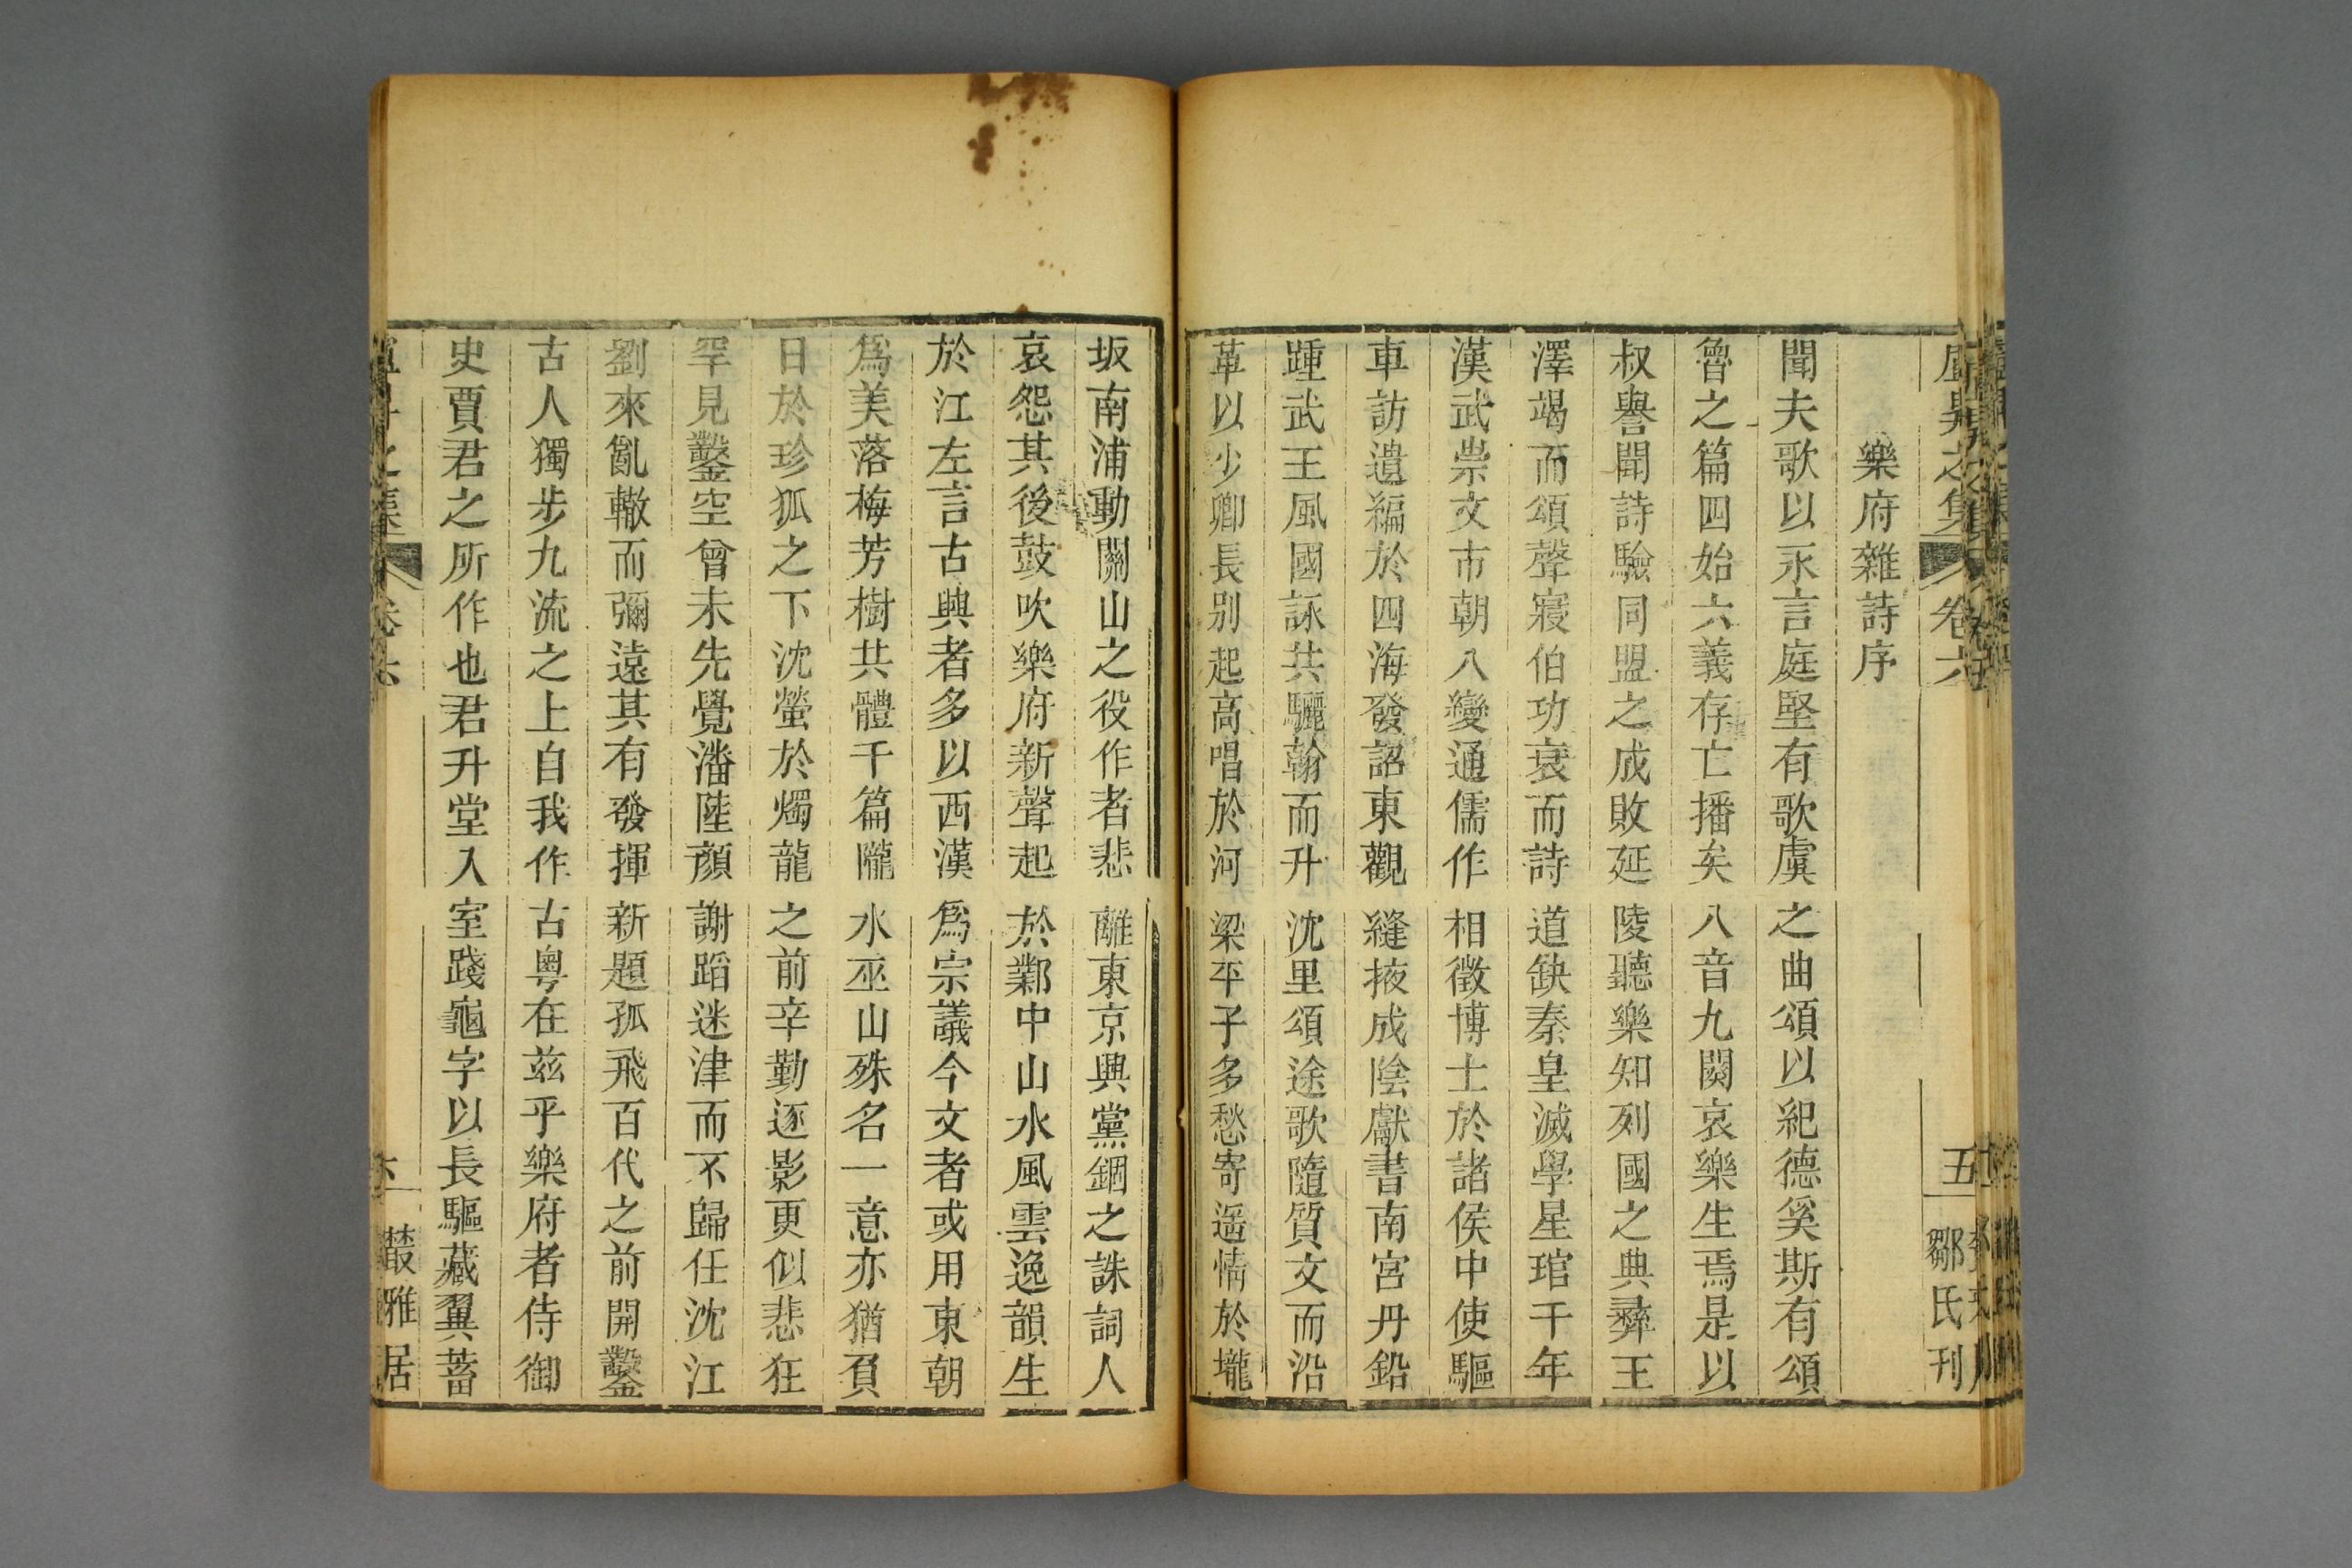 盧昇之集 卷六 五 鄒氏刊
樂府雜詩序
聞夫歌以永言庭堅有歌虞之曲頌以紀德奚斯有頌
魯之篇四始六義存亡播矣八音九闋哀樂生焉是以
叔譽聞詩驗同盟之成敗延陵聽樂知列國之典彝王
澤竭而頌聲寢伯功衰而詩道缺秦皇滅學星琯千年
漢武崇文市朝八變通儒作相徵博士於諸侯中使驅
車訪遺編於四海發詔東觀縫掖成陰獻書南宮丹鉛
踵武王風國詠共驪翰而升沈里頌途歌隨質文而沿
革以少卿長別起高唱於河梁平子多愁寄遥情於壠
坂南浦動關山之役作者悲離東京興黨錮之誅詞人
哀怨其後鼓吹樂府新聲起於鄴中山水風雲逸韻生
於江左言古興者多以西漢爲宗議今文者或用東朝
爲美落梅芳樹共體千篇隴水巫山殊名一意亦猶負
日於珍狐之下沈螢於燭龍之前辛勤逐影更似悲狂
罕見鑿空曾未先覺潘陸顏謝蹈迷津而不歸任沈江
劉來亂轍而彌遠其有發揮新題孤飛百代之前開鑿
古人獨步九流之上自我作古粵在兹乎樂府者侍御
史賈君之所作也君升堂入室踐龜字以長驅藏翼蓄
之集 卷六 叢雅居